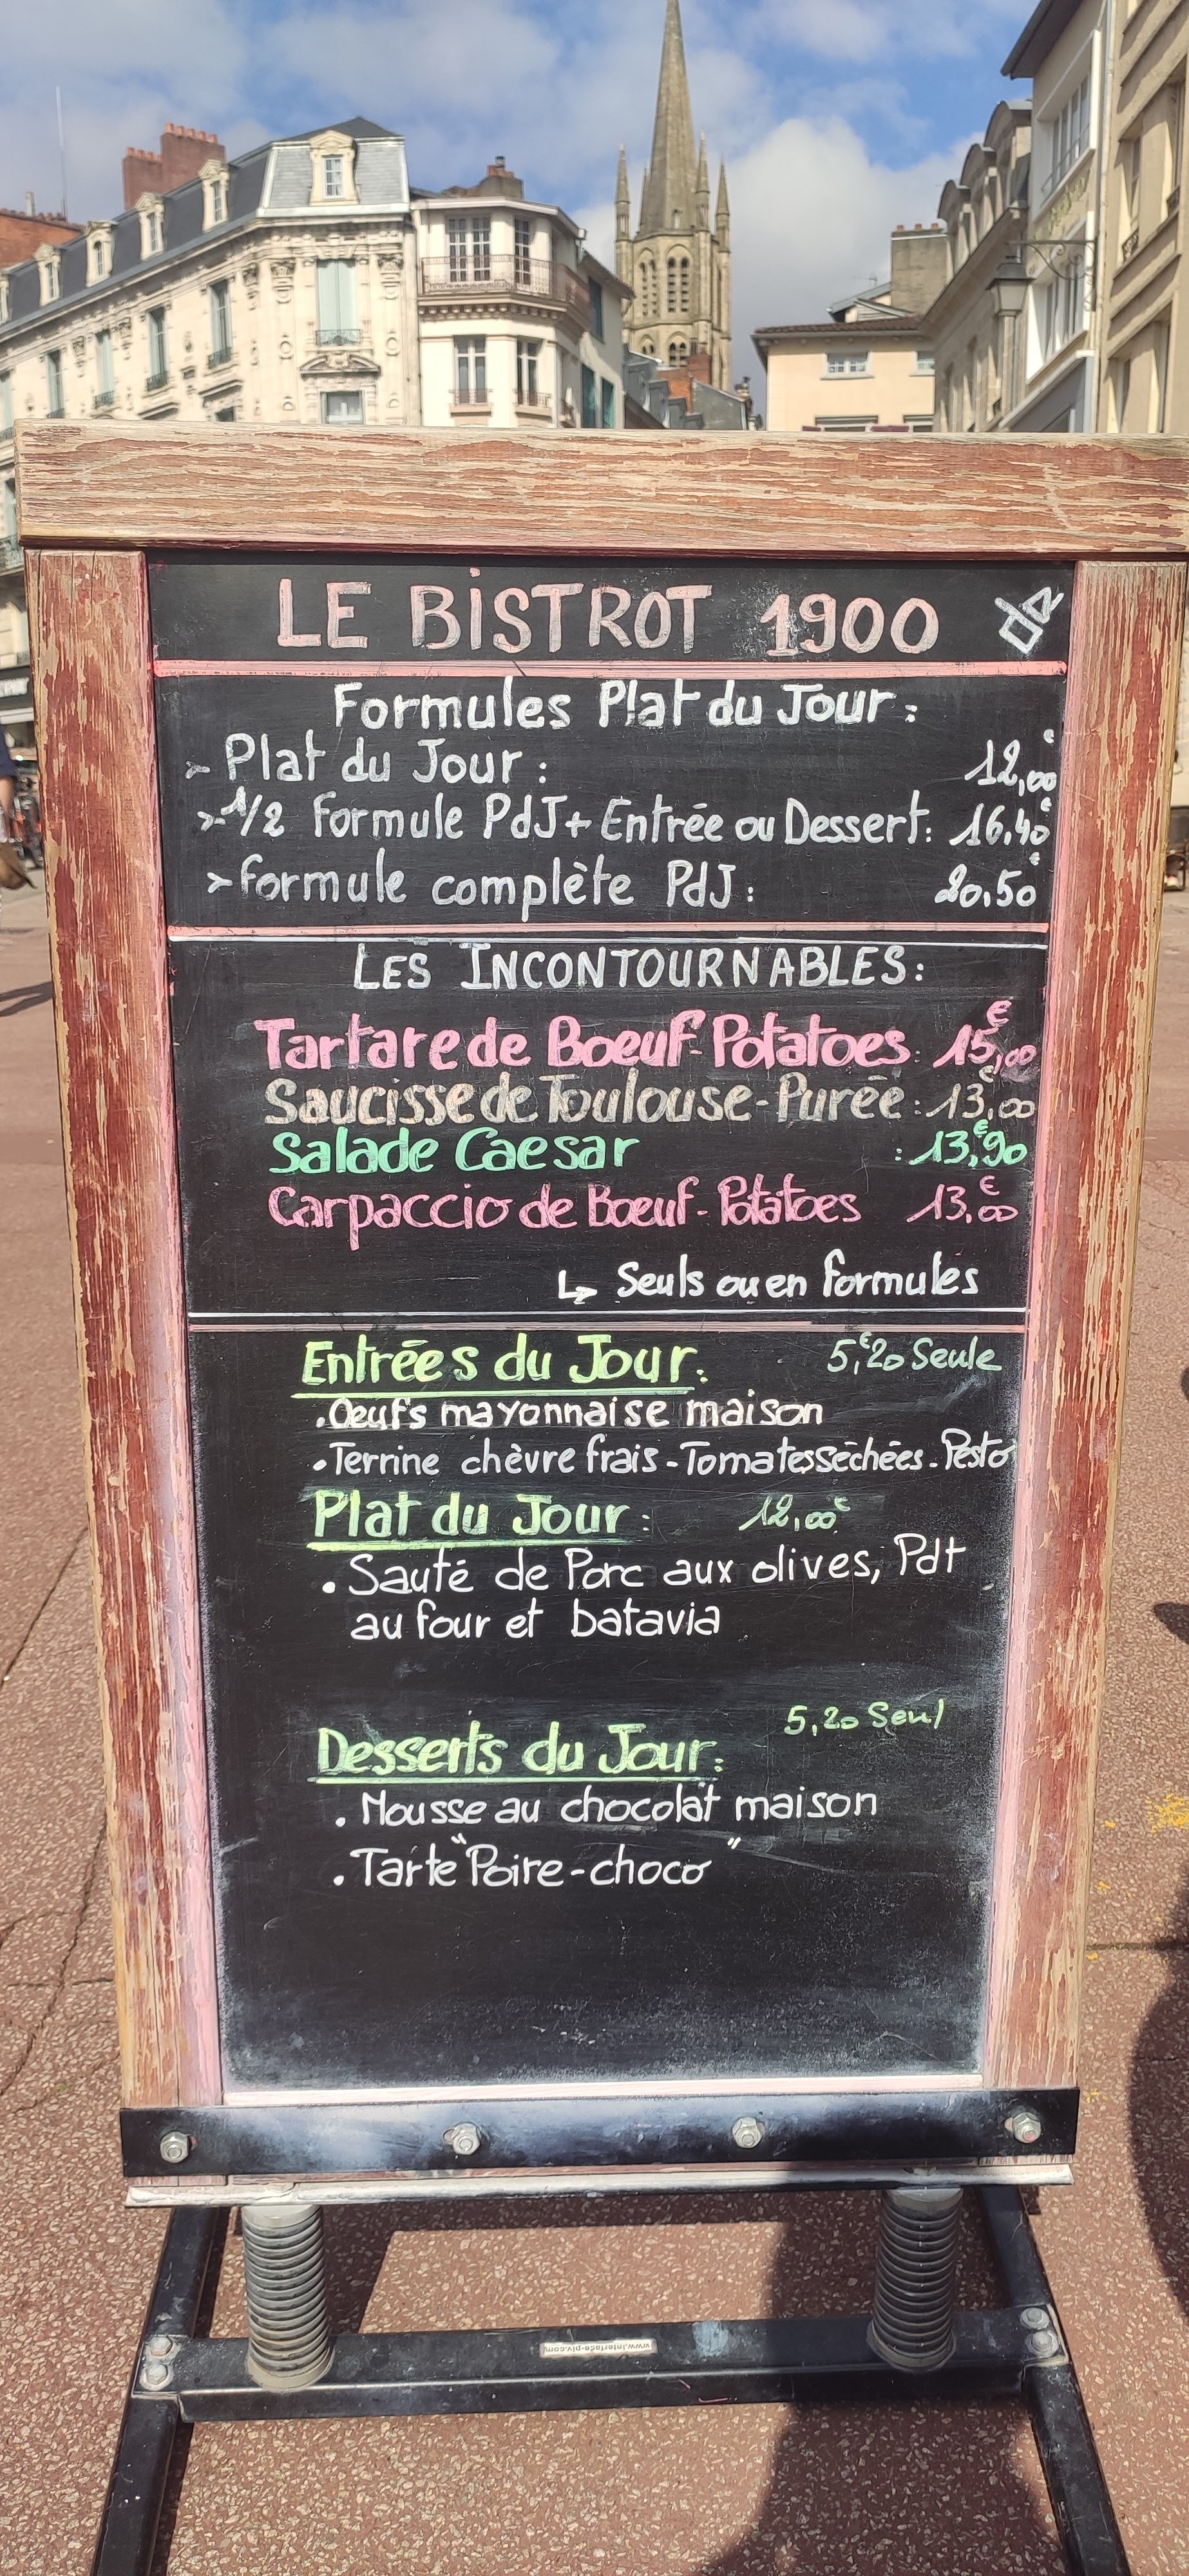 LE BISTROT 1900
Formules Plat du Jour :
> Plat du Jour : 12,00€
> 1/2 Formule PdJ + Entrée ou Dessert : 16,40€
> formule complète PdJ : 20,50€
LES INCONTOURNABLES :
Tartare de Boeuf - Potatoes : 15,00€
Saucisse de Toulouse - Purée : 13,00€
Salade Caesar : 13,90€
Carpaccio de Boeuf - Potatoes 13,00€
↳ Seuls ou en formules
Entrées du Jour : 5,20€ Seule
. Oeufs mayonnaise maison
. Terrine chèvre frais - Tomates séchées - Pesto
Plat du Jour : 12,00€
. Sauté de Porc aux olives, Pdt
au four et batavia
5,20 Seul
Desserts du Jour :
. Mousse au chocolat maison
. Tarte "Poire-choco"
www.interface-plv.com